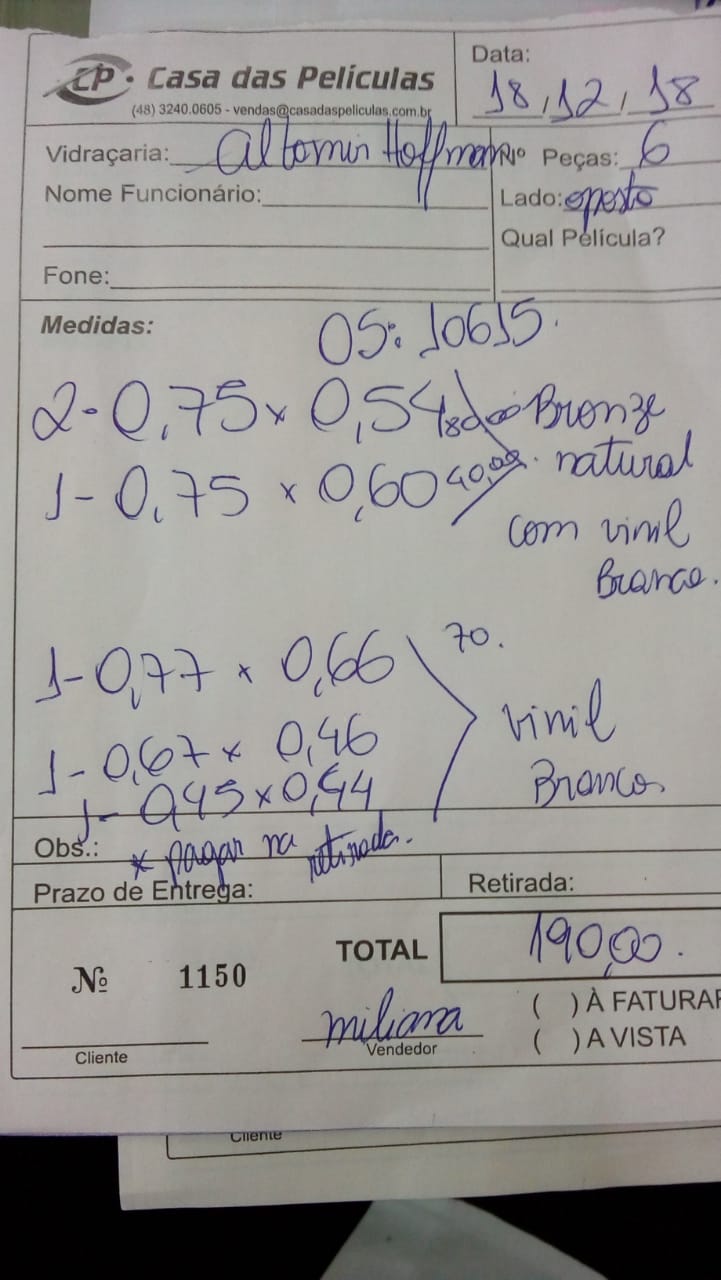 CP · Casa das Películas
(48) 3240.0605 - vendas@casadaspeliculas.com.br
Data:
18, 12, 18
Vidraçaria: Altomir Hoffmann
Nº Peças: 6
Nome Funcionário:
Lado: oposto
Qual Película?
Fone:
Medidas:
OS: 10615.
2-0,75 x 0,54 Bronze
1-0,75 x 0,60 40,00. natural
com vinil
Branco.
1-0,77 x 0,66 70.
1-0,67 x 0,46 vinil
1-0,45 x 0,44 Branco
Obs.: * pagar na retirada.
Prazo de Entrega:
Retirada:
TOTAL 190,00.
Nº 1150
miliana
( ) À FATURAR
( ) A VISTA
Cliente
Vendedor
Cliente